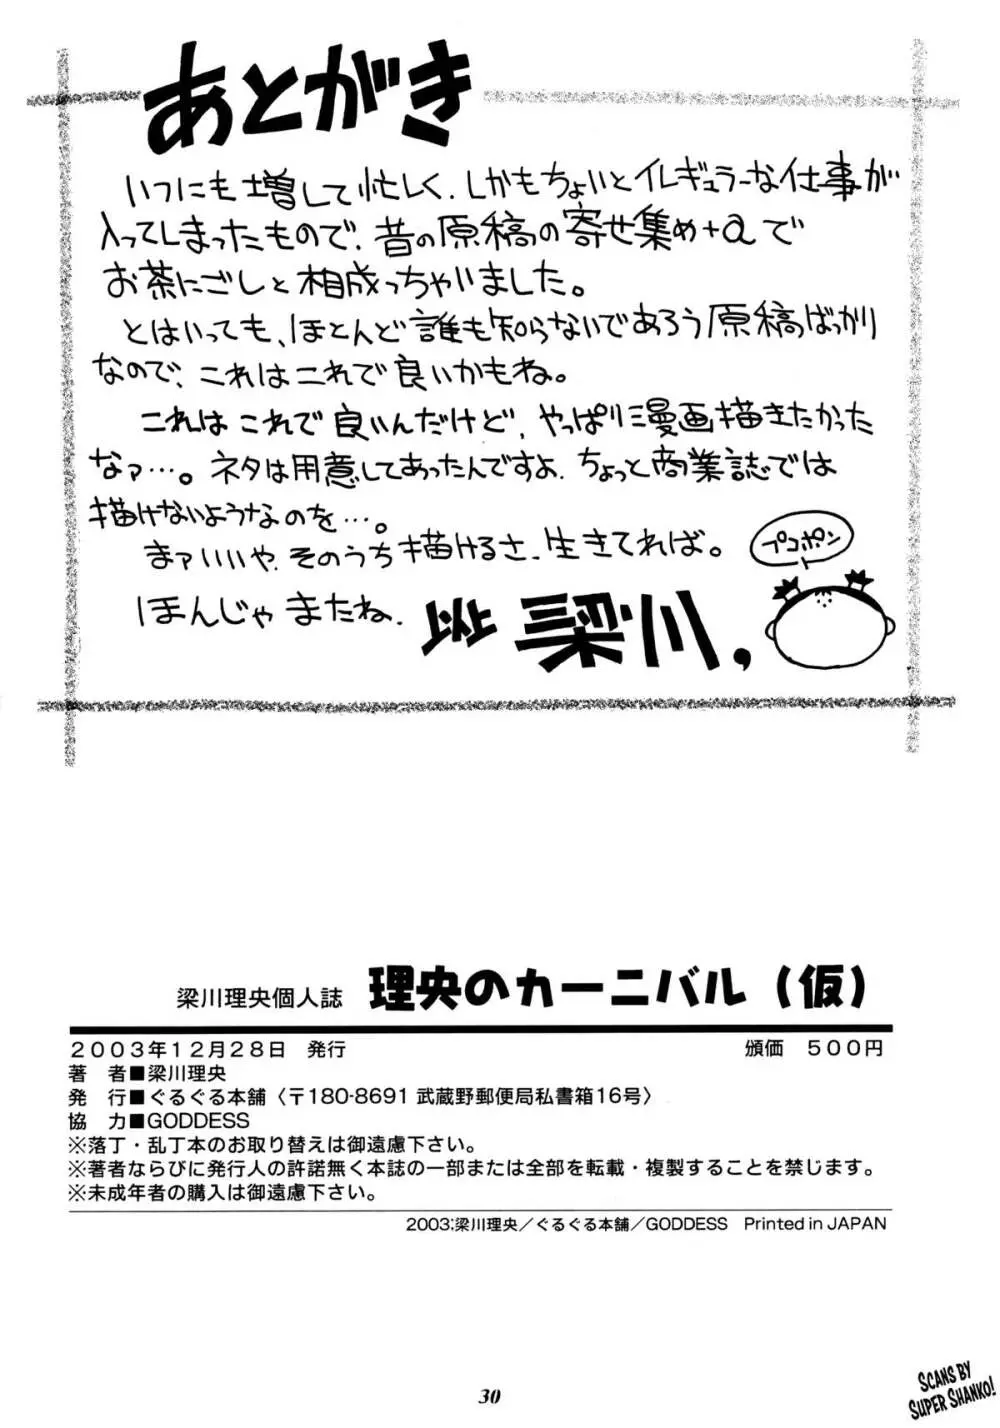 あとがき
いつにも増して忙しく、しかもちょいとイレギュラーな仕事が
入ってしまったもので、昔の原稿の寄せ集め+αで
お茶にごしと相成っちゃいました。
とはいっても、ほとんど誰も知らないであろう原稿ばっかり
なので、これはこれで良いかもね。
これはこれで良いんだけど、やっぱり漫画描きたかった
なァ…。ネタは用意してあったんですよ、ちょっと商業誌では
描けないようなのを…。
まァいいや、そのうち描けるさ、生きてれば。
プコポン
ほんじゃまたね、
以上 梁川,
梁川理央個人誌 理央のカーニバル(仮)
2003年12月28日 発行 頒価 500円
著 者■梁川理央
発 行■ぐるぐる本舗〈〒180-8691 武蔵野郵便局私書箱16号〉
協 力■GODDESS
※落丁・乱丁本のお取り替えは御遠慮下さい。
※著者ならびに発行人の許諾無く本誌の一部または全部を転載・複製することを禁じます。
※未成年者の購入は御遠慮下さい。
2003:梁川理央／ぐるぐる本舗／GODDESS Printed in JAPAN
30
SCANS BY
SUPER SHANKO!